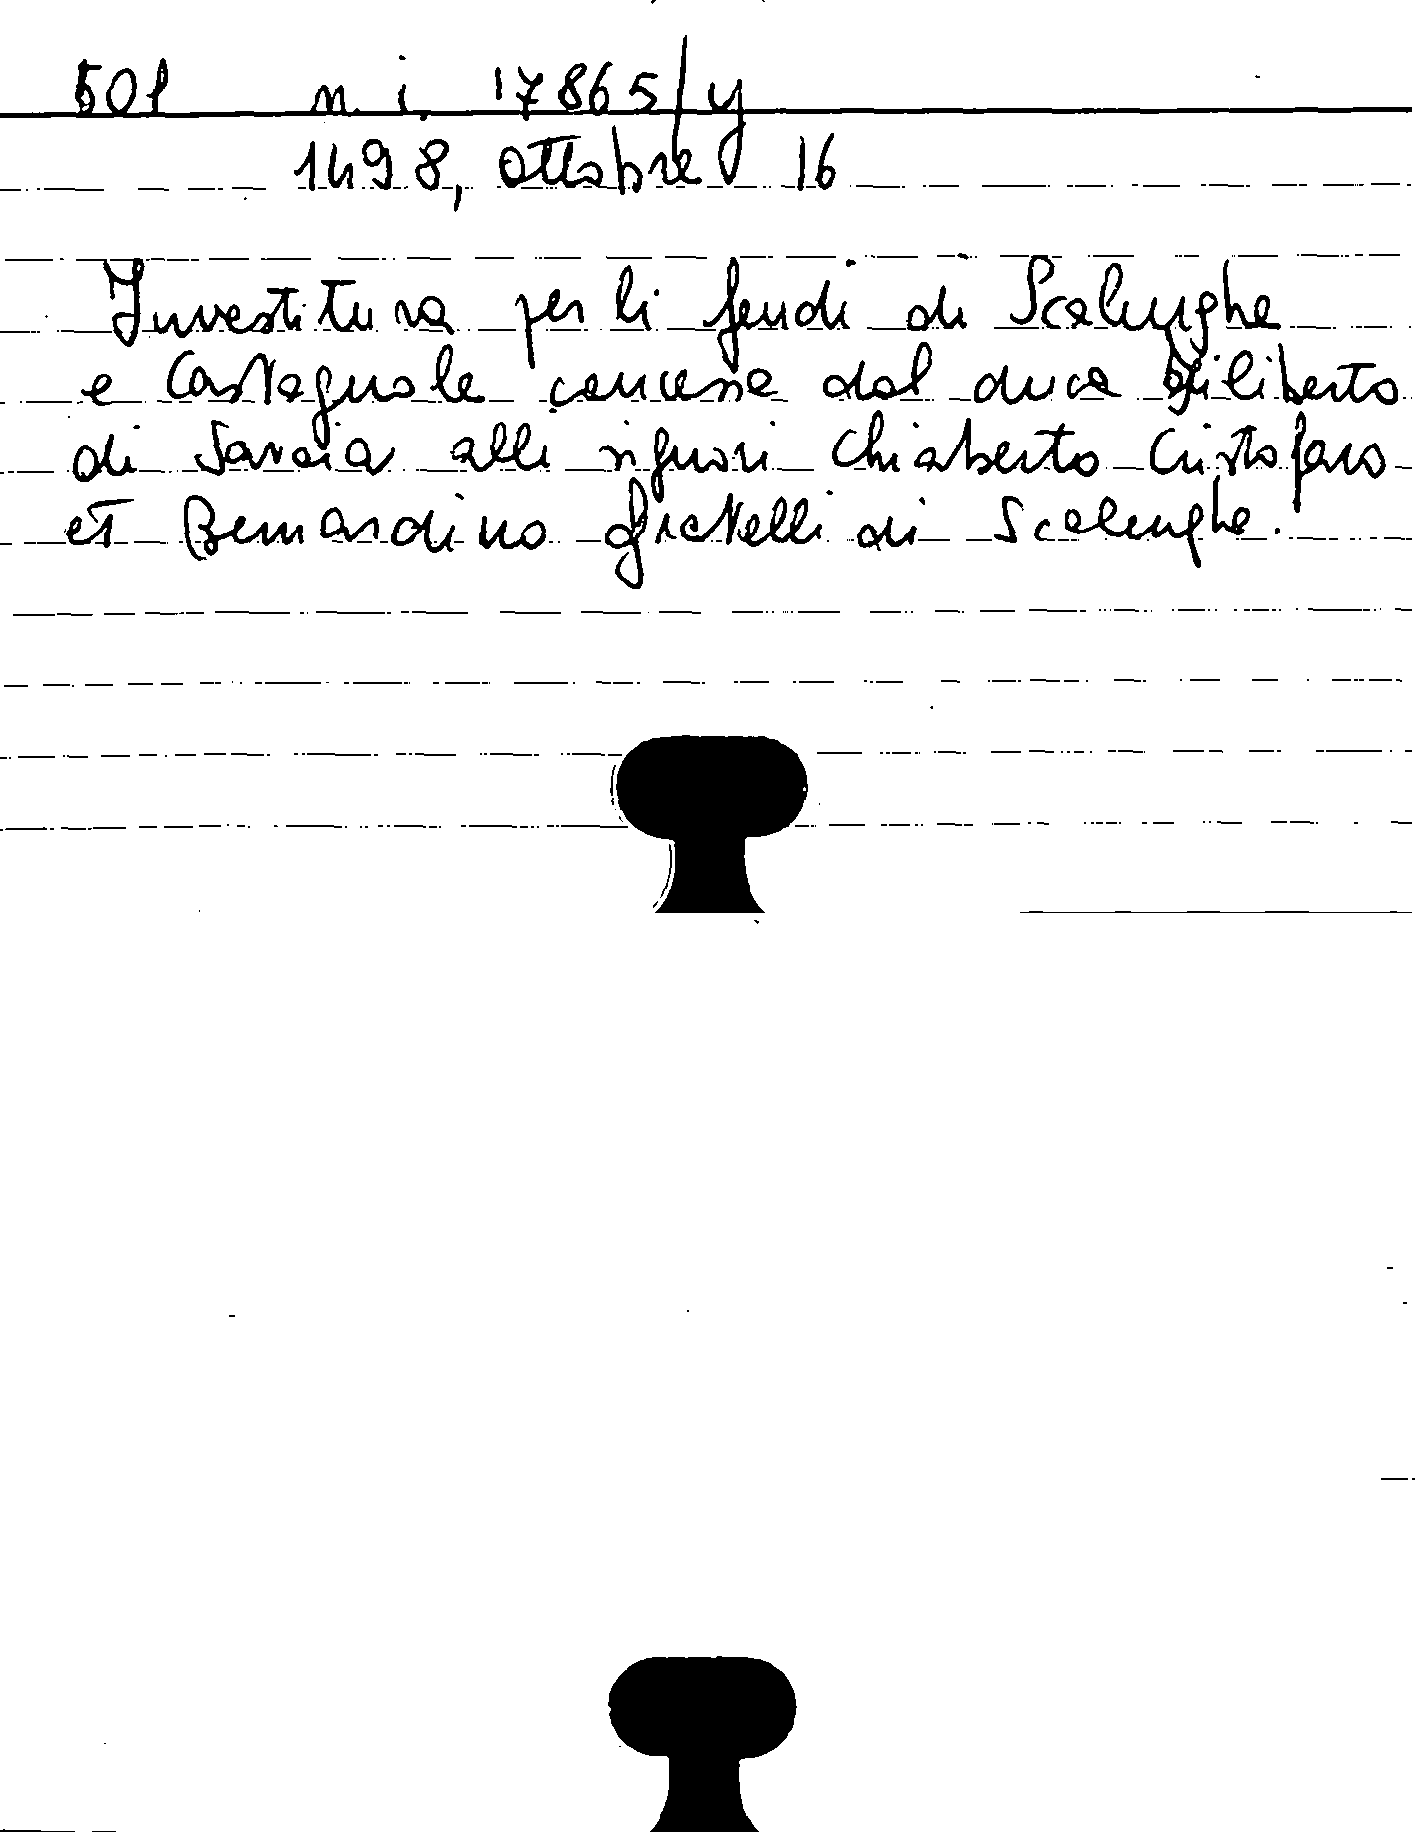 501 n. i. 17865/y
1498, ottobre 16
Investitura per li feudi di Scalenghe
e Castagnole concessa dal duca Filiberto
di Savoia alli signori Chiaberto Cristofaro
et Bernardino fratelli di Scalenghe.